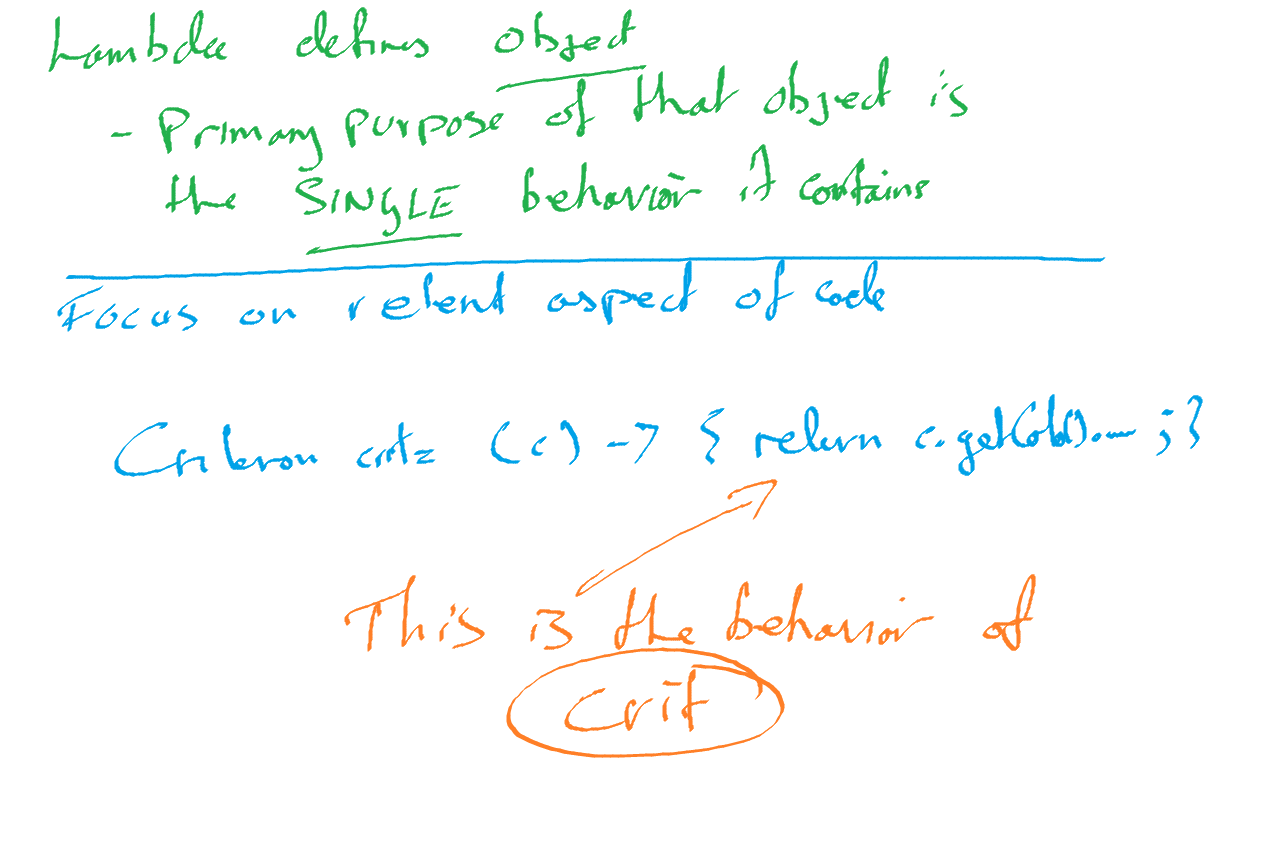 Lambda defines object
- Primary purpose of that object is
the SINGLE behavior it contains
Focus on relent aspect of code
Criterion crit = (c) -> { return c.getColor().— ;}
This is the behavior of
crit